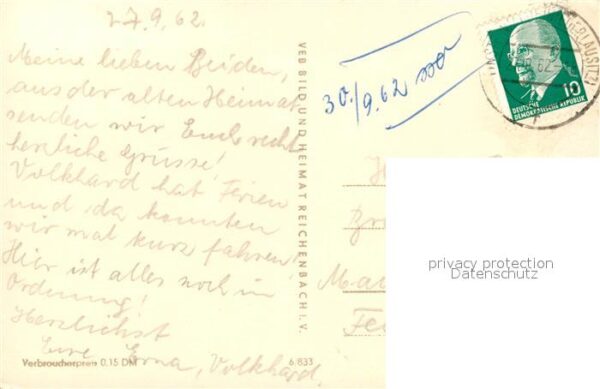 27.9.62.
Meine lieben Beiden,
aus der alten Heimat
senden wir Euch recht
herzliche Grüsse!
Volkhard hat Ferien
und da konnten
wir mal kurz fahren!
Hier ist alles noch in
Ordnung!
Herzlichst
Eure Erna, Volkhard.
Verbraucherpreis 0,15 DM
6/833
VEB BILD UND HEIMAT REICHENBACH I. V.
30./9.62
10
DEUTSCHE
DEMOKRATISCHE REPUBLIK
privacy protection
Datenschutz